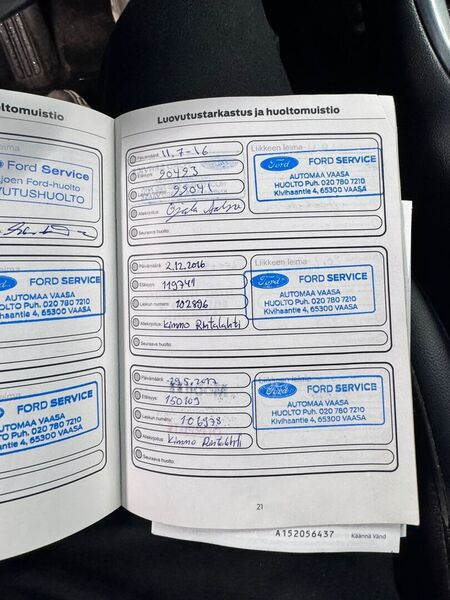 ltomuistio
Ford Service
joen Ford-huolto
VUTUSHUOLTO
FORD SERVICE
AUTOMAA VAASA
HUOLTO Puh. 020 780 7210
Kivihaantie 4, 65300 VAASA
FORD SERVICE
AUTOMAA VAASA
HUOLTO Puh. 020 780 7210
Kivihaantie 4, 65300 VAASA
Luovutustarkastus ja huoltomuistio
Päivämäärä: 11.7-16
Liikkeen leima
Etäisyys: 90493
99041
Allekirjoitus:
Seuraava huolto:
Ford FORD SERVICE
AUTOMAA VAASA
HUOLTO Puh. 020 780 7210
Kivihaantie 4, 65300 VAASA
Päivämäärä: 2.12.2016
Liikkeen leima
Etäisyys: 119741
Laskun numero: 102896
Allekirjoitus: Kimmo Rintalahti
Seuraava huolto:
Ford FORD SERVICE
AUTOMAA VAASA
HUOLTO Puh. 020 780 7210
Kivihaantie 4, 65300 VAASA
Päivämäärä: 29.5.2017
Etäisyys: 150109
Laskun numero: 106978
Allekirjoitus: Kimmo Rintalahti
Seuraava huolto:
Ford FORD SERVICE
AUTOMAA VAASA
HUOLTO Puh. 020 780 7210
Kivihaantie 4, 65300 VAASA
21
A152056437
Käännä Vänd